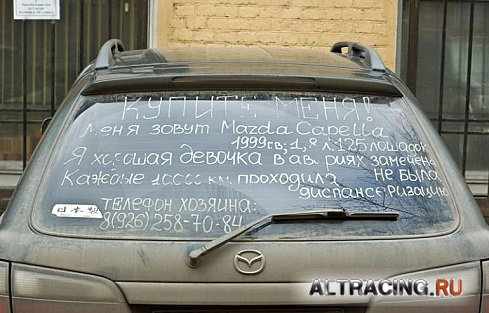 КУПИТЕ МЕНЯ!
Меня зовут Mazda Capella
1999г.в., 1,8 л. 125 лошадок
Я хорошая девочка в авариях замечена
не была
Каждые 10000 км проходила
диспансеризацию
ТЕЛЕФОН ХОЗЯИНА:
8(926) 258-70-84
日本製
ALTRACING.RU